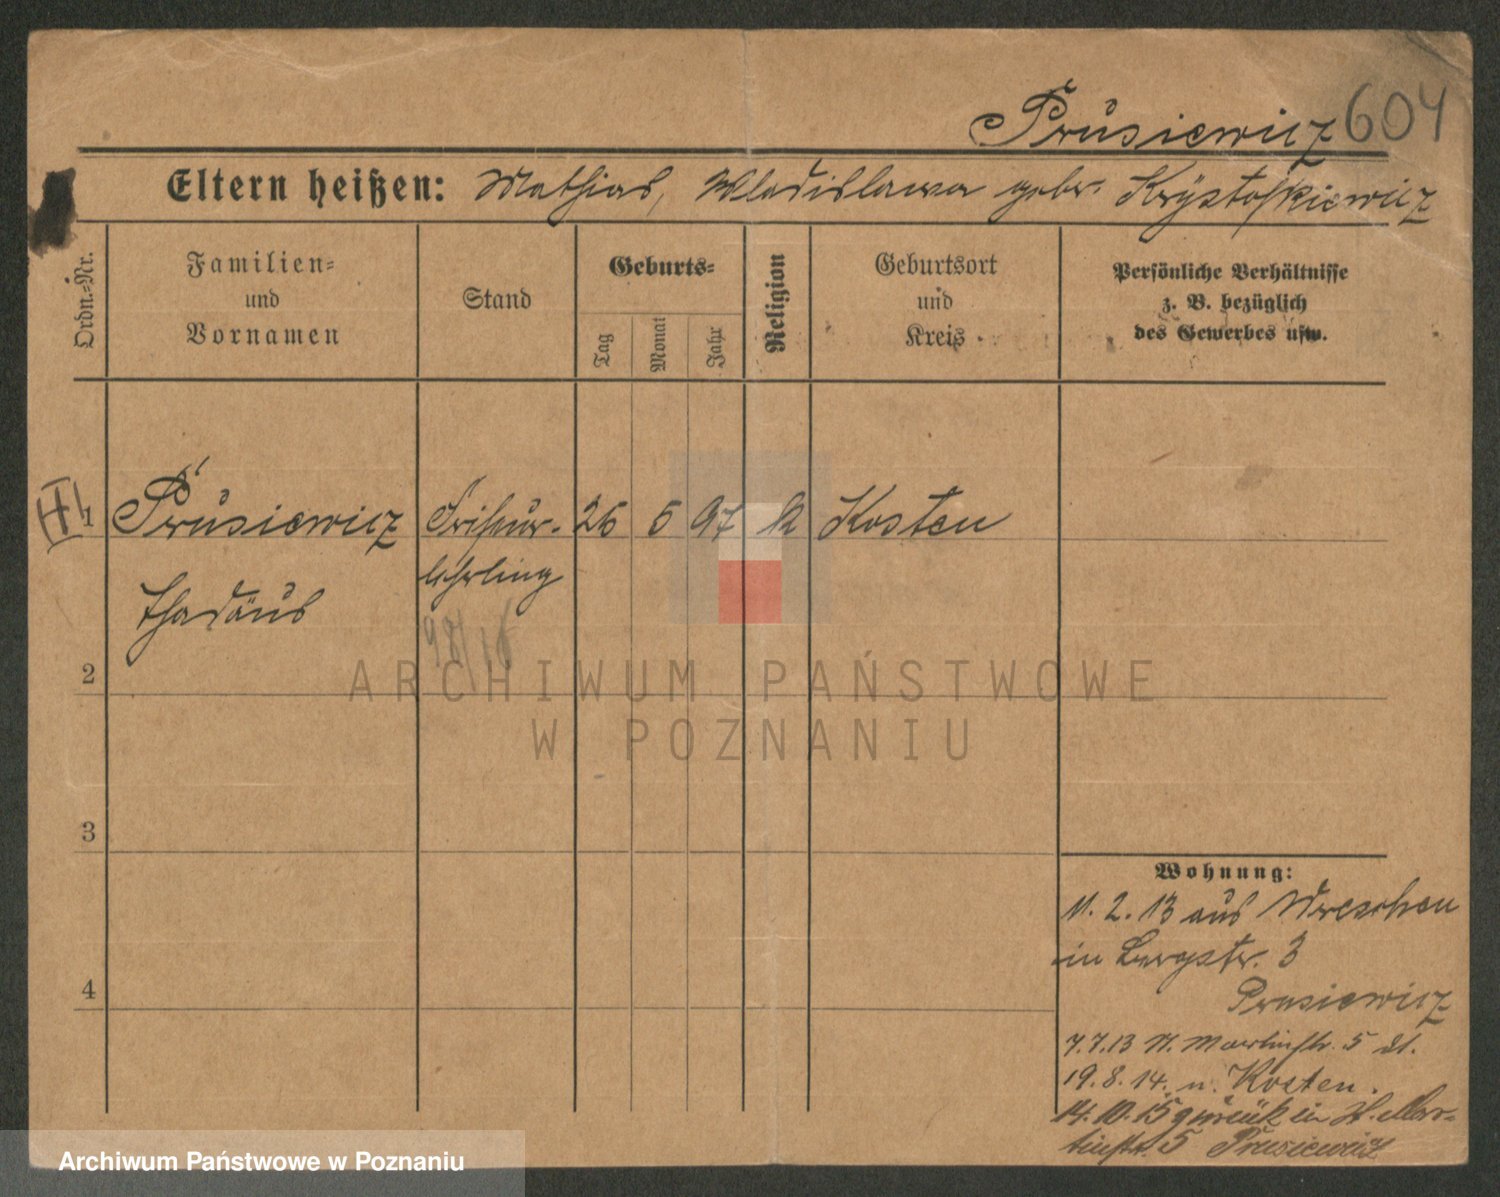 Prusiewicz 604
Eltern heißen: Mathias, Wladislawa gebr. Krystofkiewicz
Ordn.-Nr.
Familien-
und
Vornamen
Stand
Geburts-
Tag
Monat
Jahr
Religion
Geburtsort
und
Kreis
Persönliche Verhältnisse
z. B. bezüglich
des Gewerbes usw.
1 Prusiewicz Friseur- 26 5 97 k Kosten
Thadäus lehrling
98/16
2
3
4
Wohnung:
11. 2. 13 aus Wreschen
in Bergstr. 3
Prusiewicz
7.7.13 N. Martinstr. 5
19. 8. 14. n. Kosten.
14. 10. 15 zurück in St. Mar-
tinstr. 5 Prusiewicz
ARCHIWUM PAŃSTWOWE
W POZNANIU
Archiwum Państwowe w Poznaniu